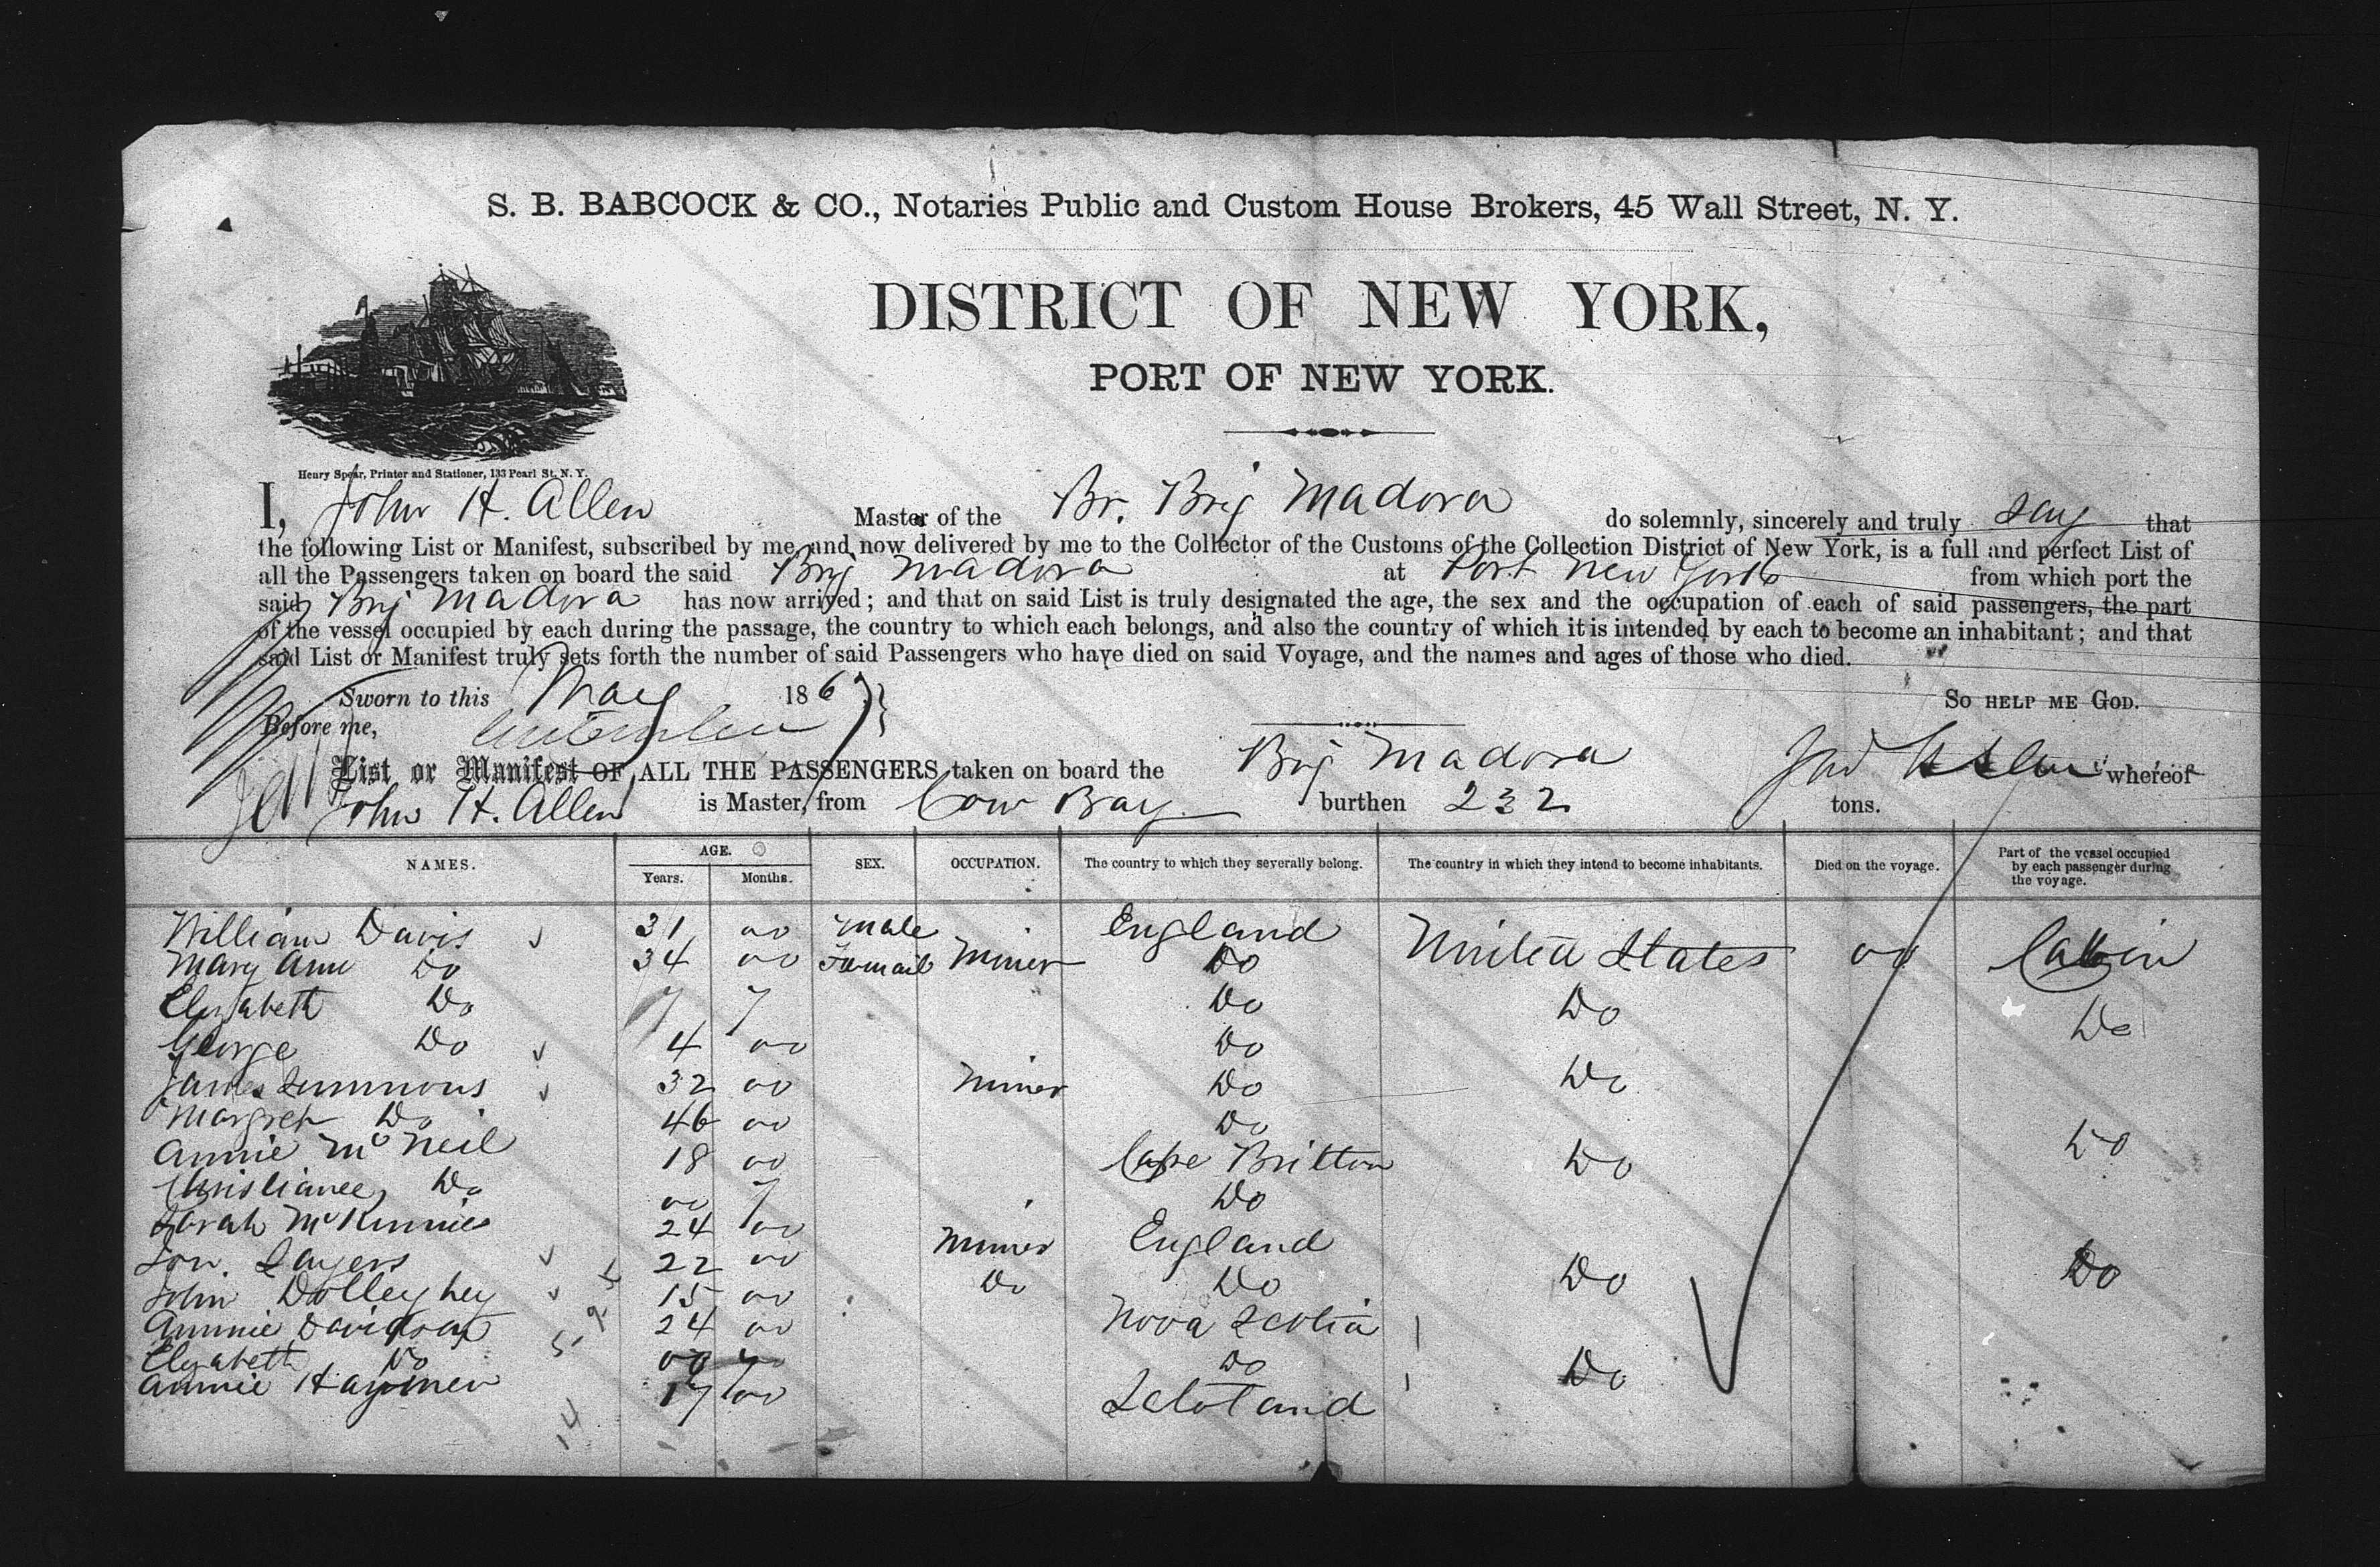 S. B. BABCOCK & CO., Notaries Public and Custom House Brokers, 45 Wall Street, N. Y.
DISTRICT OF NEW YORK,
PORT OF NEW YORK.
Henry Spear, Printer and Stationer, 133 Pearl St. N. Y.
I, John H. Allen Master of the Br. Brig Madora do solemnly, sincerely and truly say that
the following List or Manifest, subscribed by me, and now delivered by me to the Collector of the Customs of the Collection District of New York, is a full and perfect List of
all the Passengers taken on board the said Brig Madora at Port New York from which port the
said Brig Madora has now arrived; and that on said List is truly designated the age, the sex and the occupation of each of said passengers, the part
of the vessel occupied by each during the passage, the country to which each belongs, and also the country of which it is intended by each to become an inhabitant; and that
said List or Manifest truly sets forth the number of said Passengers who have died on said Voyage, and the names and ages of those who died.
Sworn to this May 186 SO HELP ME GOD.
Before me,
List or Manifest OF ALL THE PASSENGERS taken on board the Brig Madora whereof
John H. Allen is Master, from Cow Bay burthen 232 tons.
NAMES. AGE. Years. Months. SEX. OCCUPATION. The country to which they severally belong. The country in which they intend to become inhabitants. Died on the voyage. Part of the vessel occupied by each passenger during the voyage.
William Davis 31 00 Male England
Mary Ann Do 34 00 Femail Miner Do United States 00 Cabin
Elizabeth Do 7 7 Do Do
George Do 4 00 Do Do
James Simmons 32 00 Miner Do Do
Margret Do 46 00 Do
Annie McNeil 18 00 Cape Britton Do Do
Do 00 7 Do
Sarah McKinnie 24 00
Sayers 22 00 Miner England
John Dolleyhey 15 00 Do Do Do Do
Annie Davidson 24 00 Nova Scotia
Elizabeth Do 00 Do Do
Annie Haymen 17 00 Scotland
14